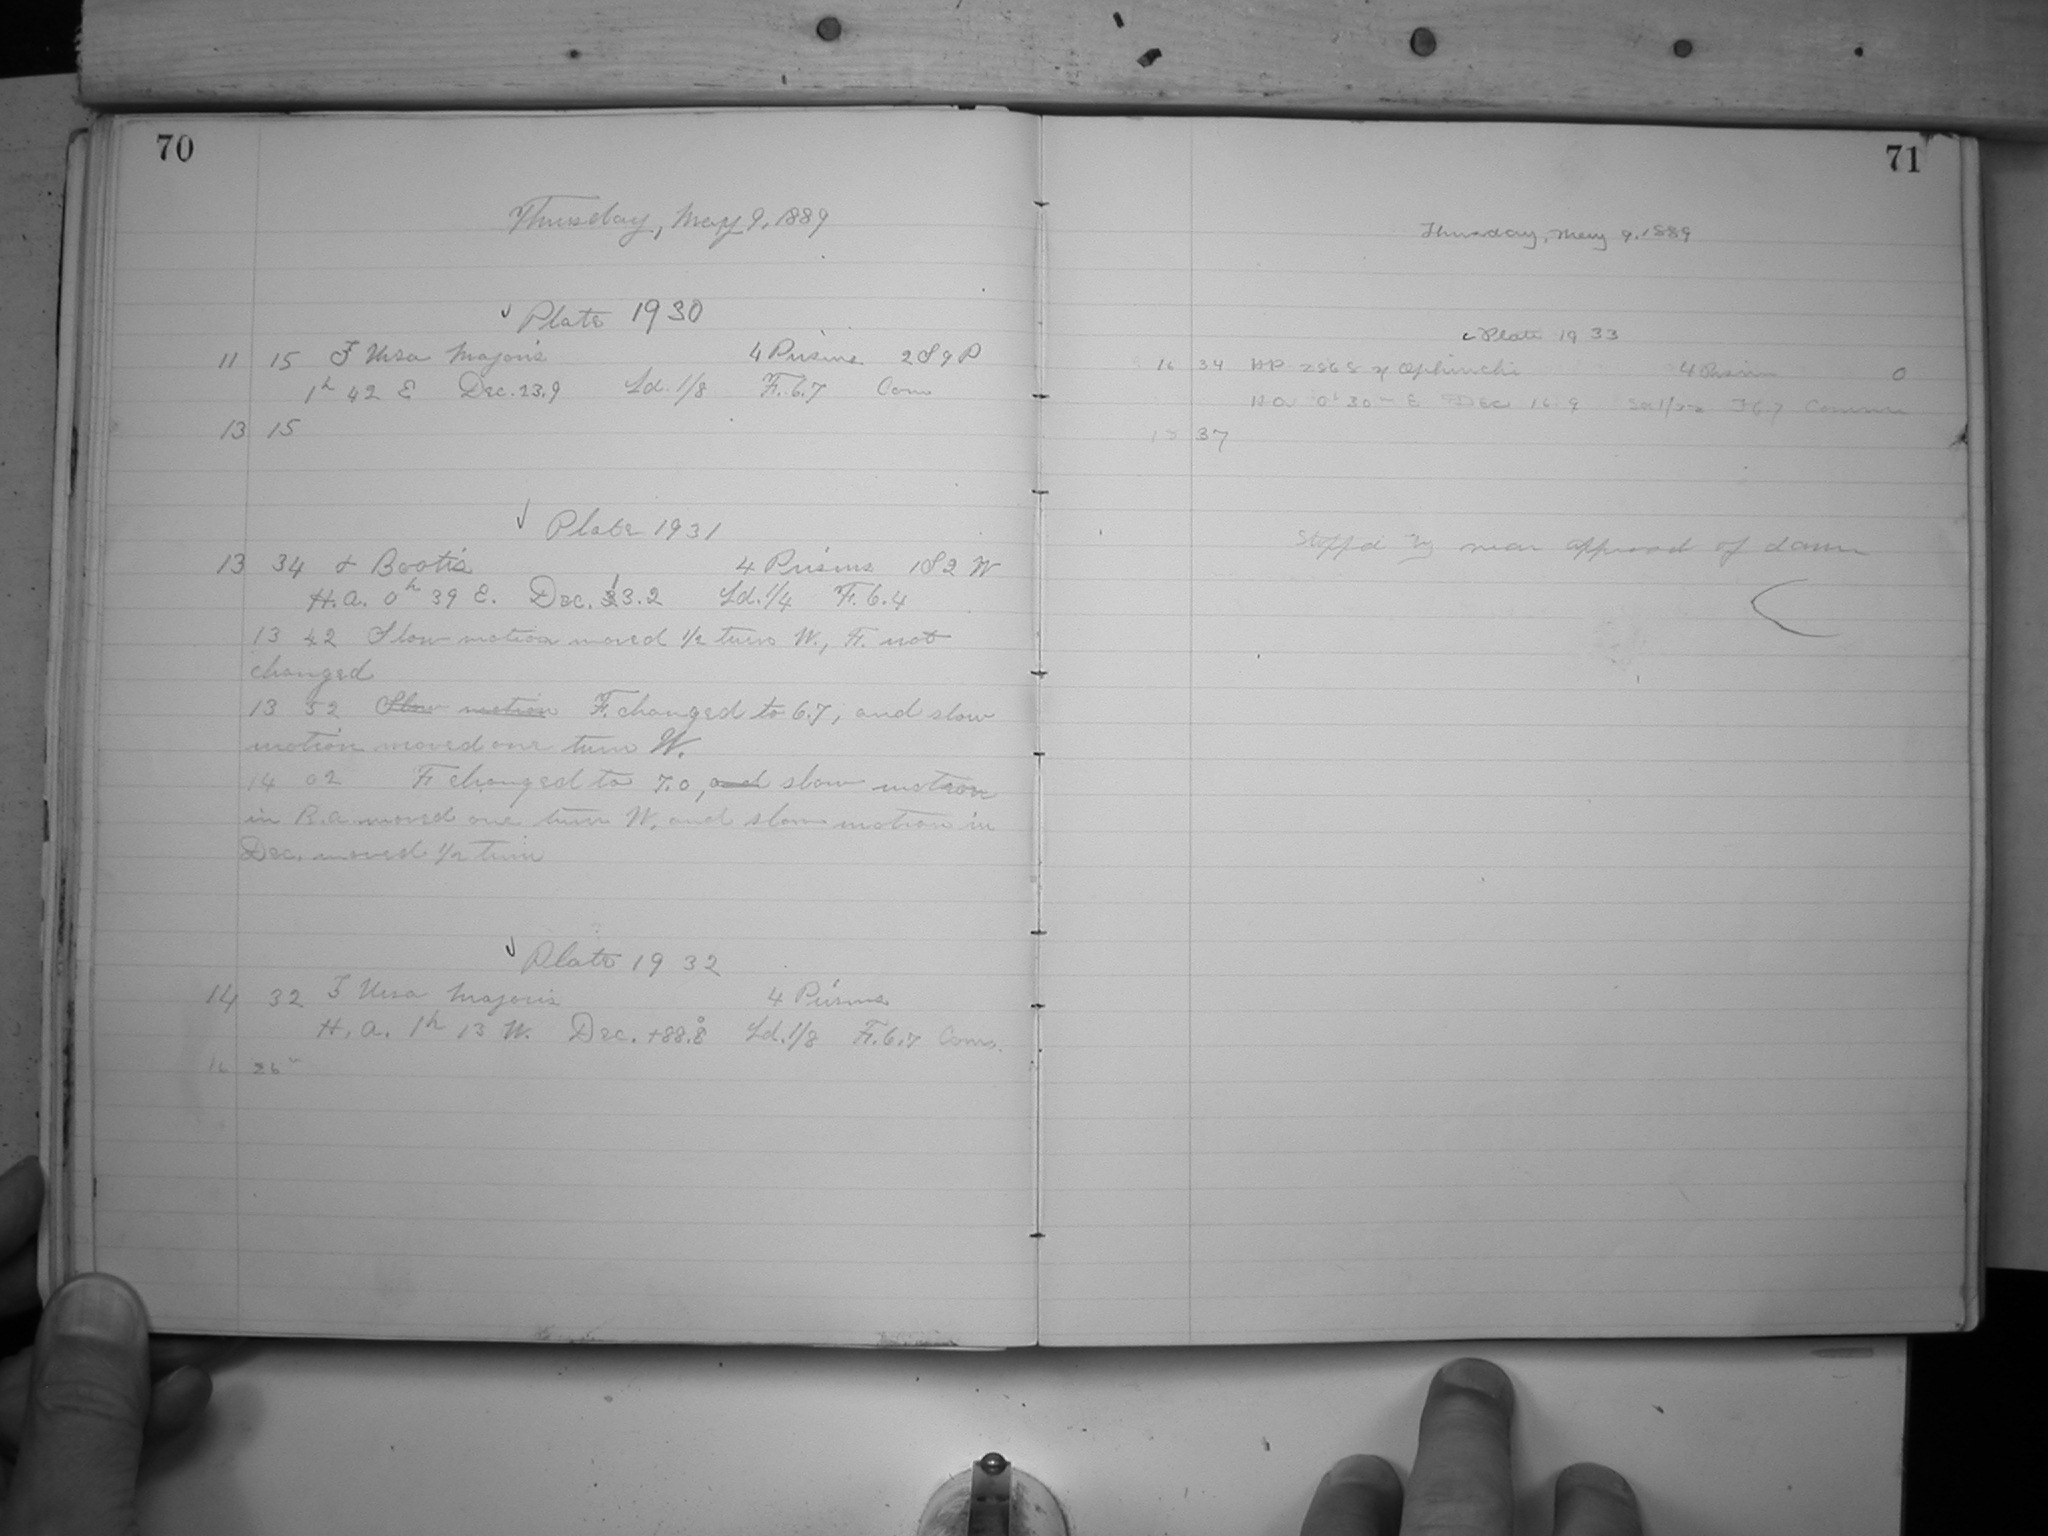 70
Thursday, May 9, 1889
✓ Plate 1930
11 15 ζ Ursa Majoris 4 Prisms 2 S 9 P
1h 42 E Dec. 23.9 Sd. 1/8 F. 6.7 Com
13 15
✓ Plate 1931
13 34 α Bootis 4 Prisms 1 S 2 W
H.A. 0h 39 E. Dec. 3.2 Sd. 1/4 F. 6.4
13 42 Slow motion moved 1/2 turn W., F. not
changed
13 52 Slow motion F. changed to 6.7, and slow
motion moved one turn W.
14 02 F. changed to 7.0, and slow motion
in R.A. moved one turn W. and slow motion in
Dec. moved 1/2 turn
✓ Plate 1932
14 32 ζ Ursa Majoris 4 Prisms
H.A. 1h 13 W. Dec. +88.8° Sd. 1/8 F. 6.7 Coms.
16 26
71
Thursday, May 9, 1889
Plate 1933
16 34 HP Ophiuchi 4 Prism 0
HA 0h 30m E Dec 16.9 F 6.7
37
Stoppd by near approach of dawn